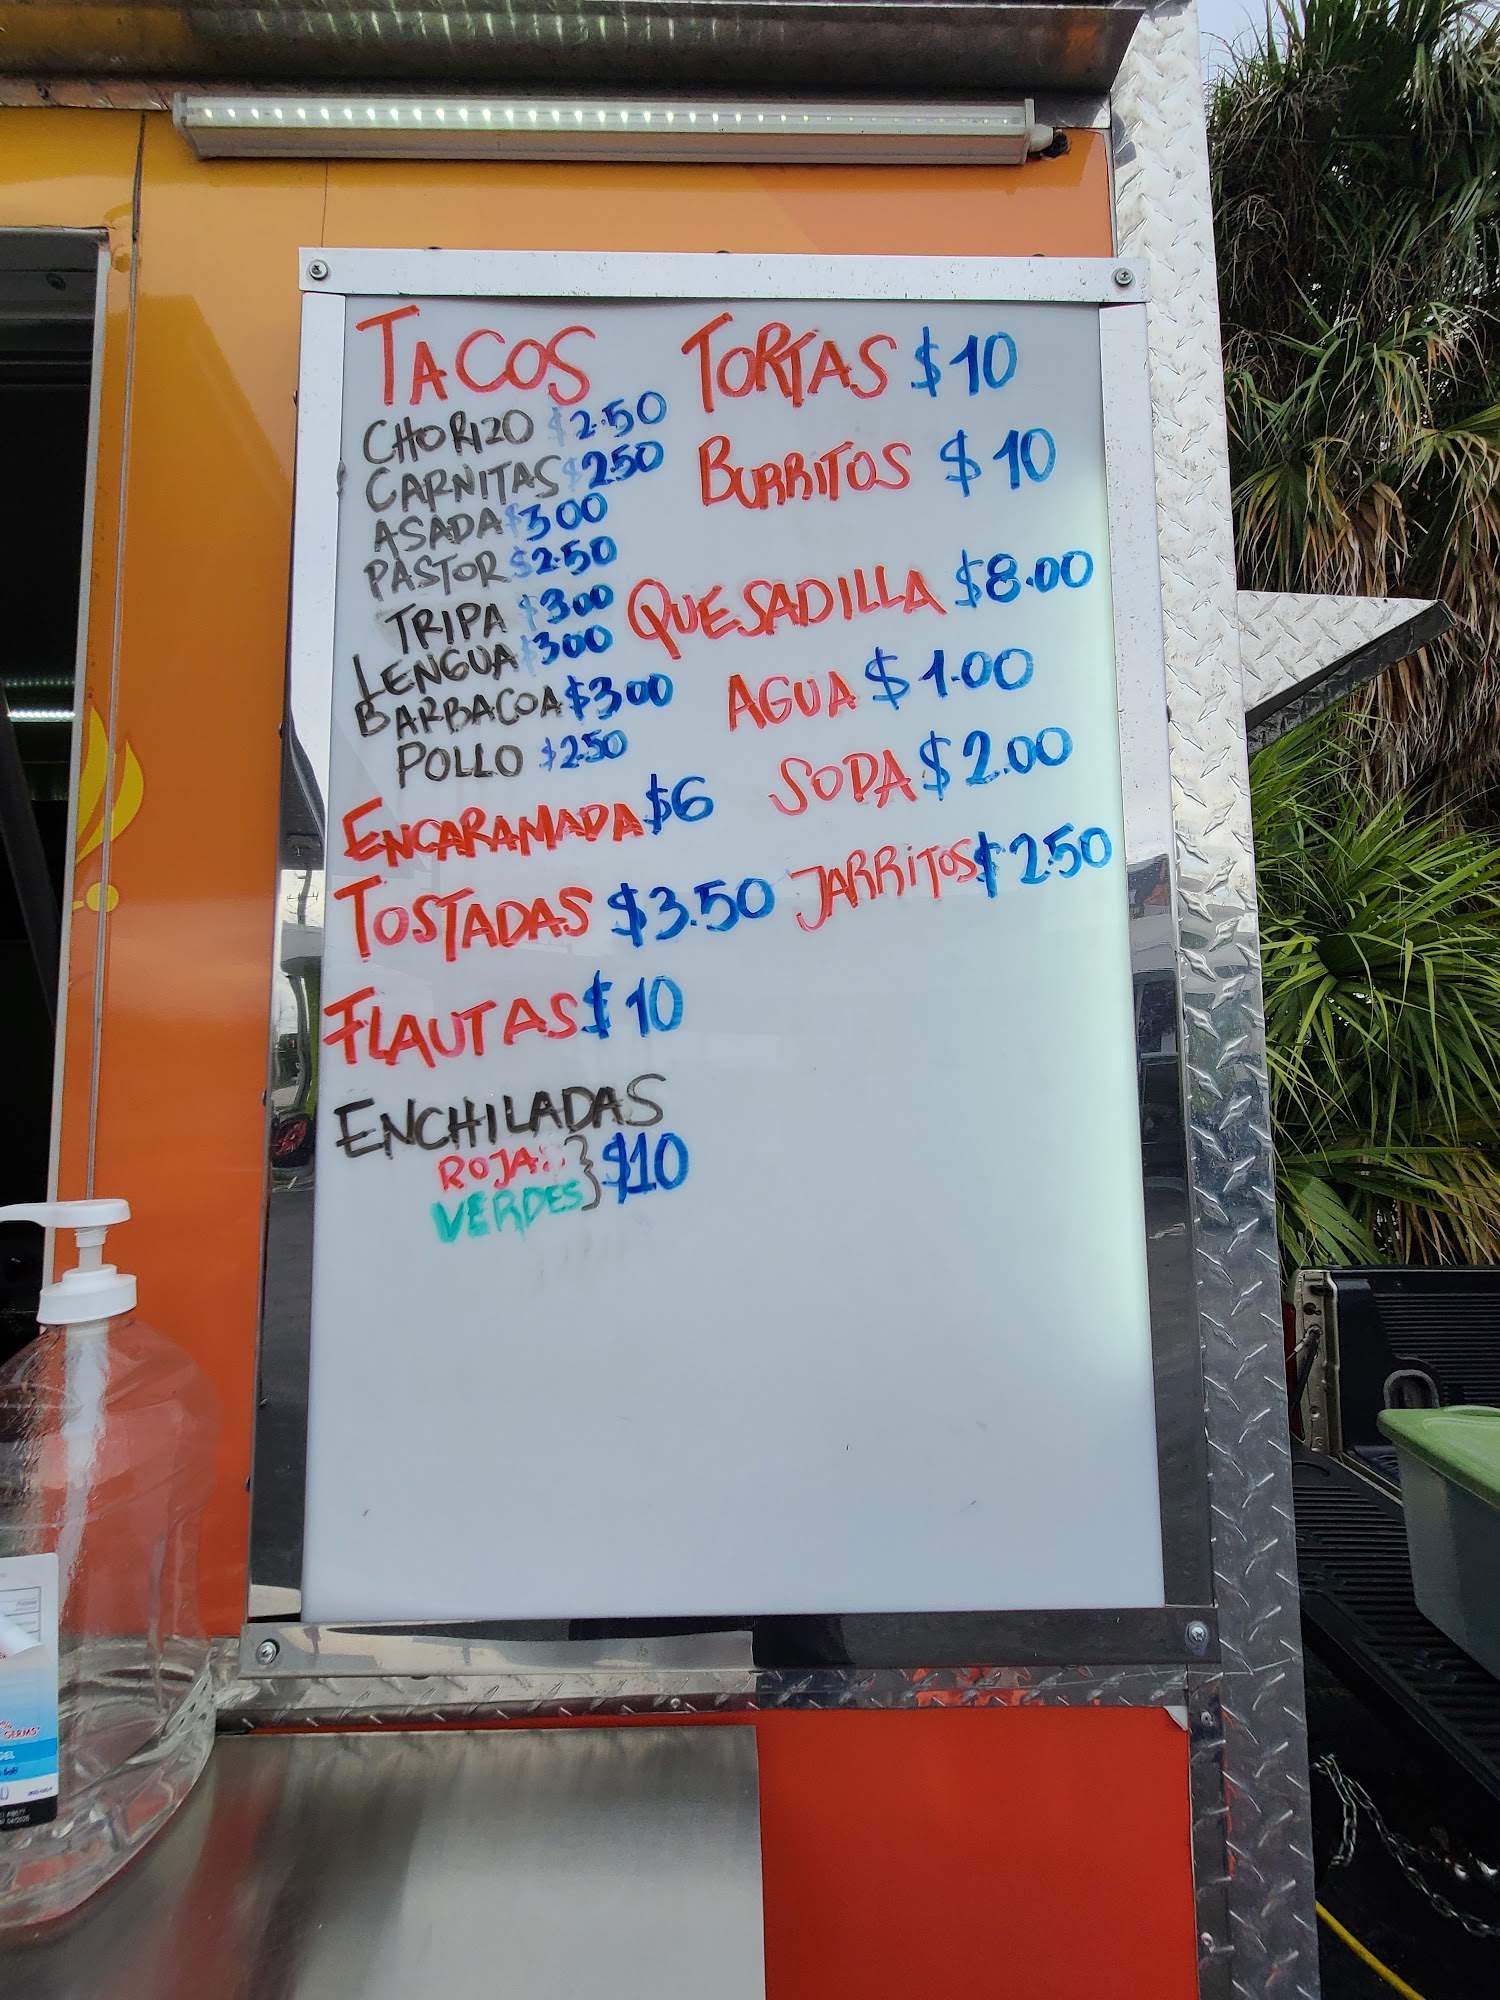 TACOS
CHORIZO $2.50
CARNITAS $2.50
ASADA $3.00
PASTOR $2.50
TRIPA $3.00
LENGUA $3.00
BARBACOA $3.00
POLLO $2.50
ENCARAMADA $6
TOSTADAS $3.50
FLAUTAS $10
ENCHILADAS
ROJAS
VERDES } $10
TORTAS $10
BURRITOS $10
QUESADILLA $8.00
AGUA $1.00
SODA $2.00
JARRITOS $2.50
GERMS*